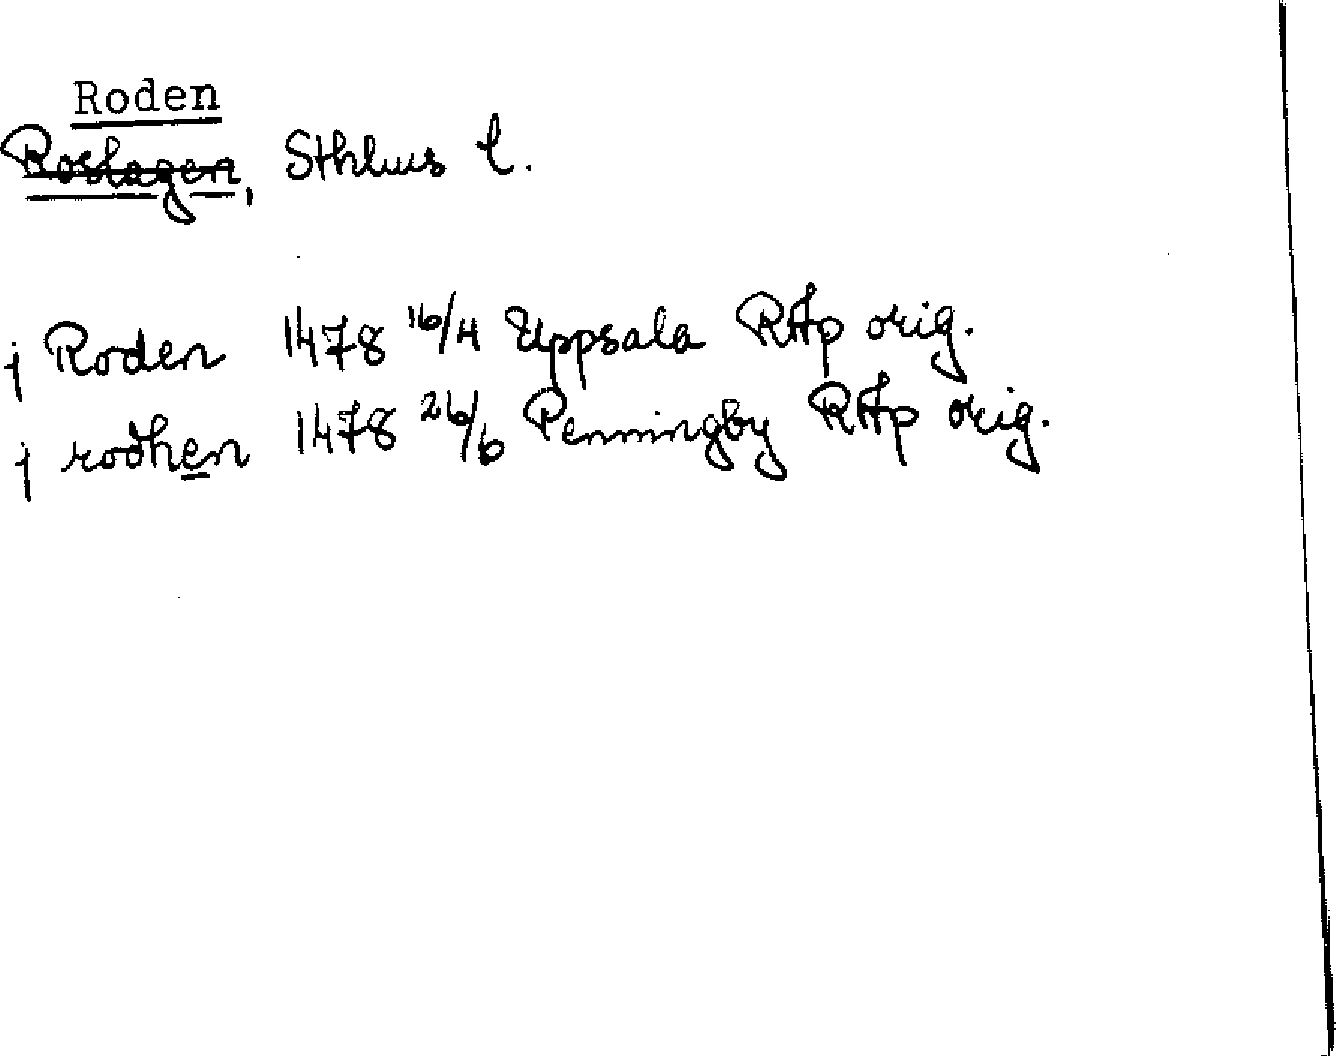 Roden
Roslagen, Sthlms l.
j Roden 1478 16/4 Uppsala RAp orig.
j rodhen 1478 26/6 Penningby RAp orig.